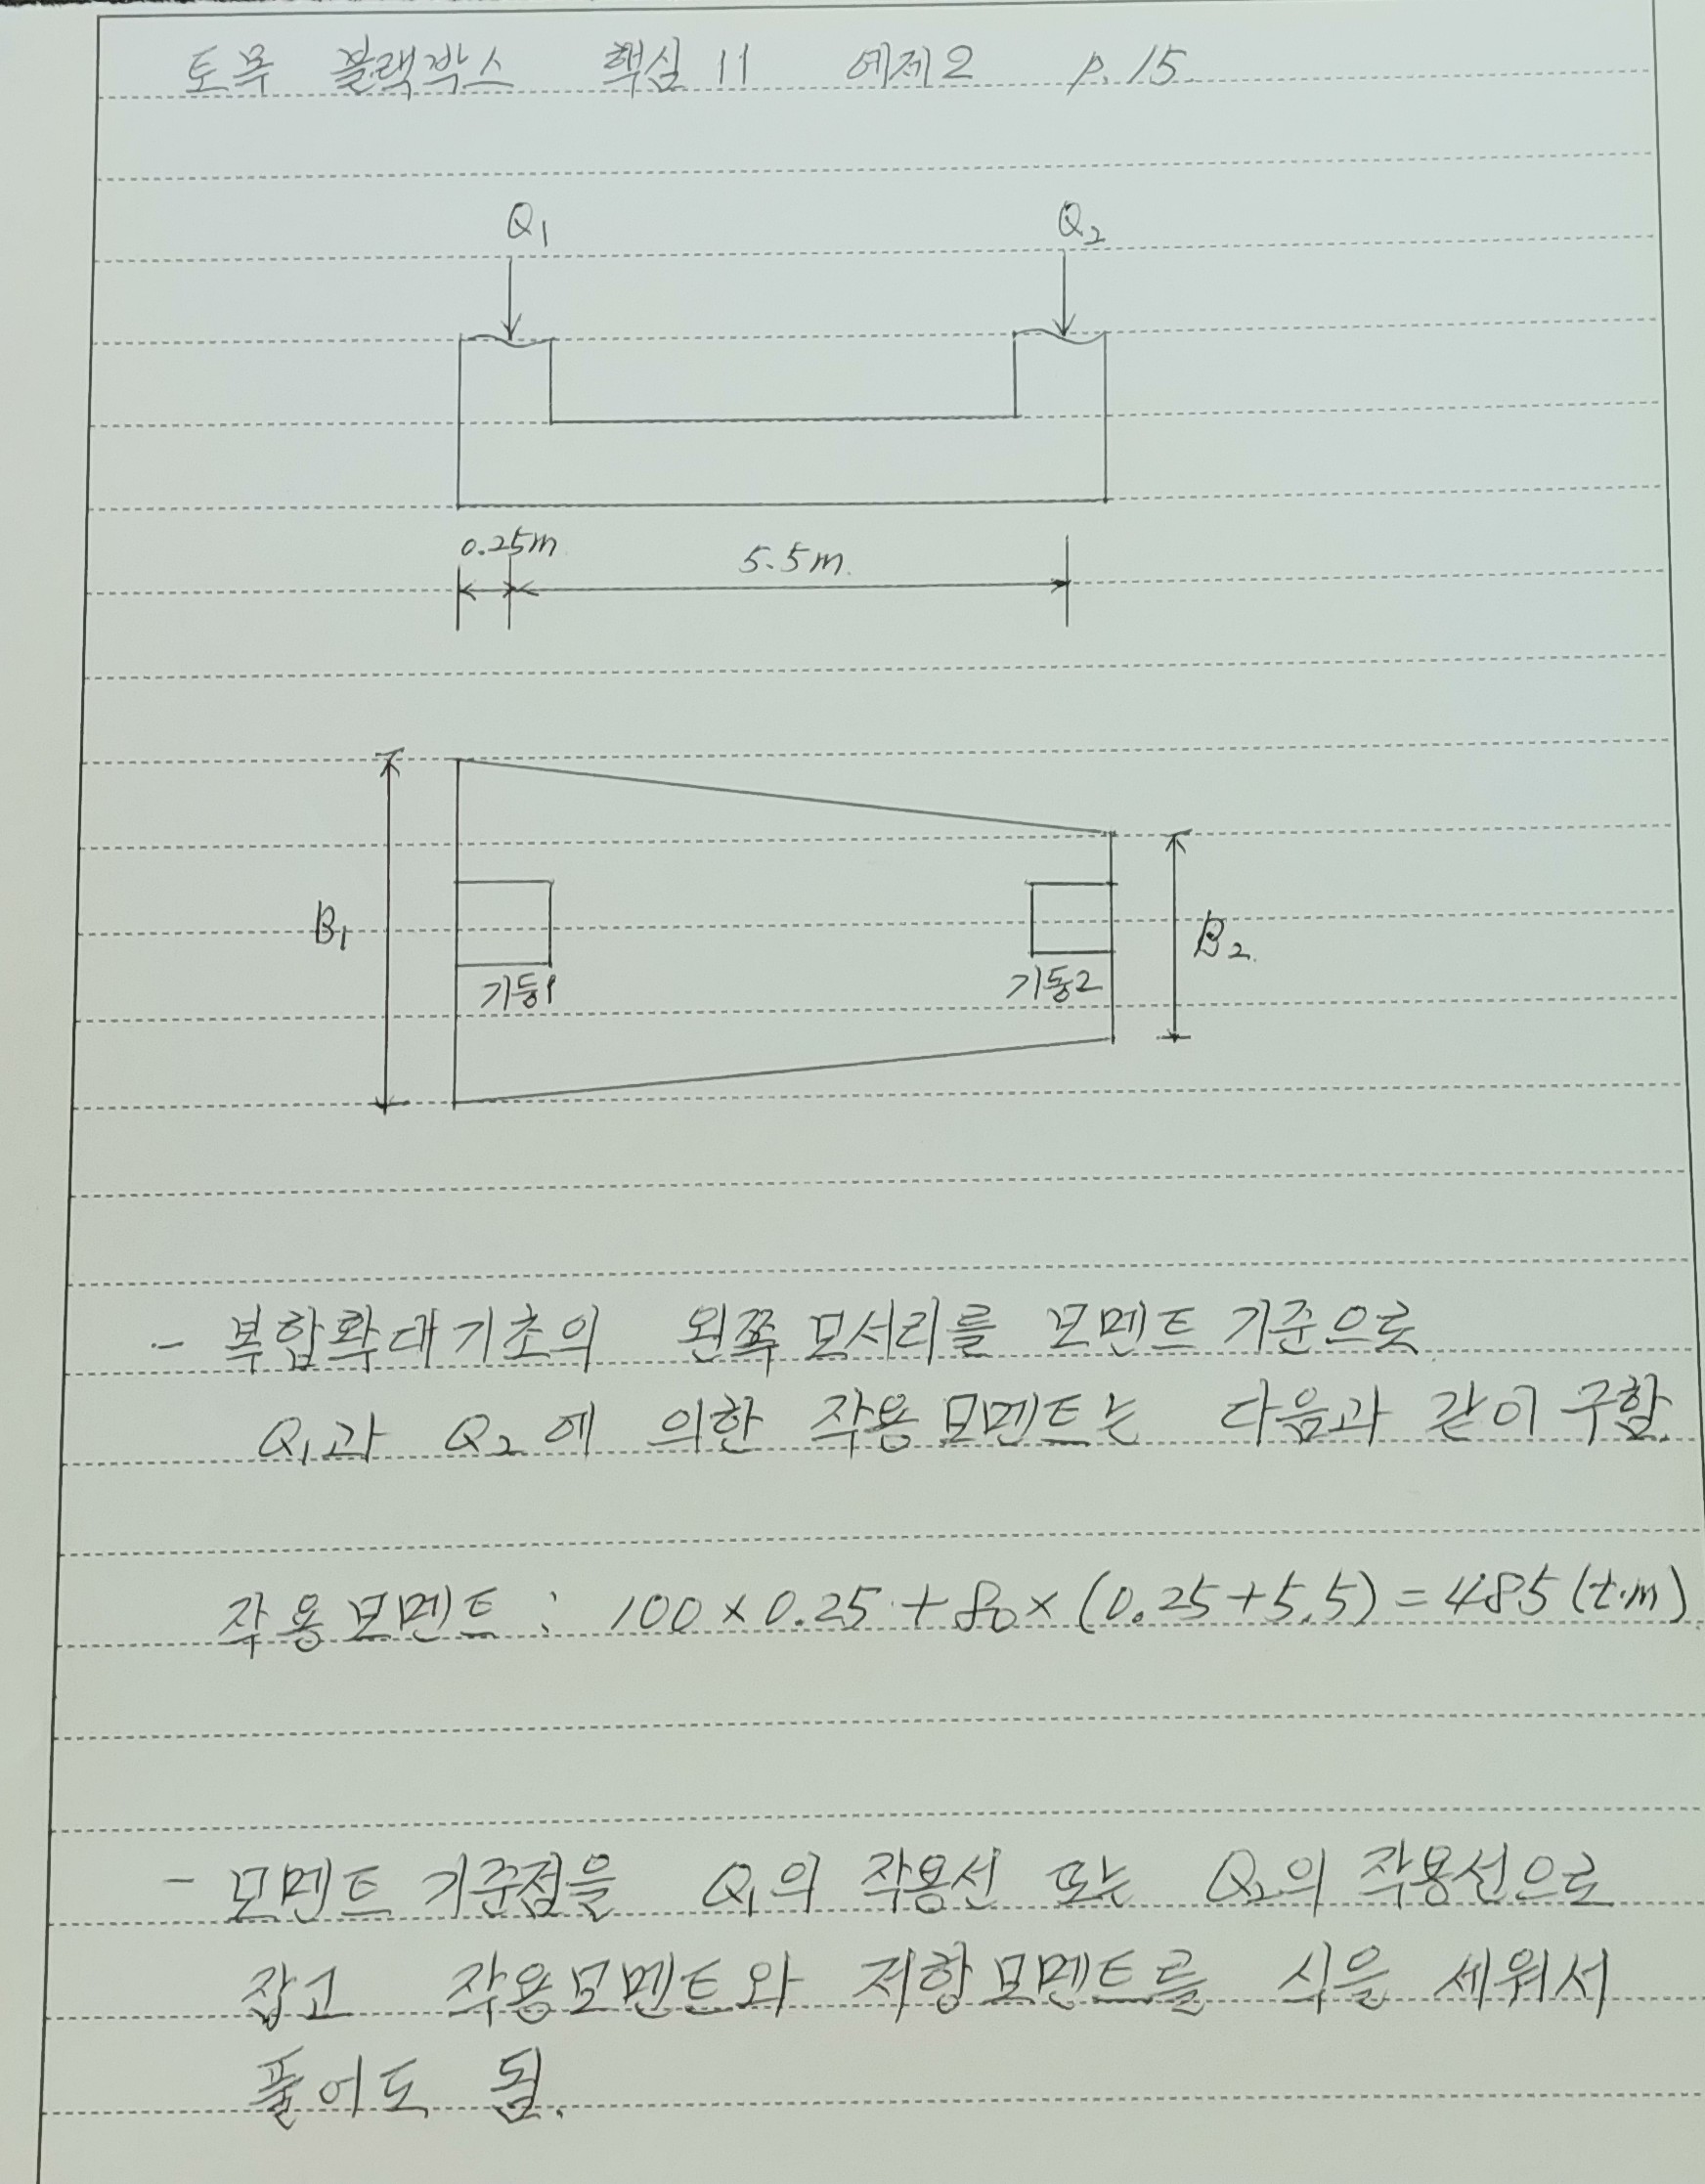 토목 블랙박스 핵심 11 예제2 p.15.
Q1 Q2
0.25m 5.5m.
B1 B2.
기둥1 기둥2
- 복합확대기초의 왼쪽 모서리를 모멘트 기준으로
Q1과 Q2에 의한 작용모멘트는 다음과 같이 구함.
작용모멘트 : 100 × 0.25 + 80 × (0.25+5.5) = 485 (t·m).
- 모멘트 기준점을 Q1의 작용선 또는 Q2의 작용선으로
잡고 작용모멘트와 저항모멘트를 식을 세워서
풀어도 됨.